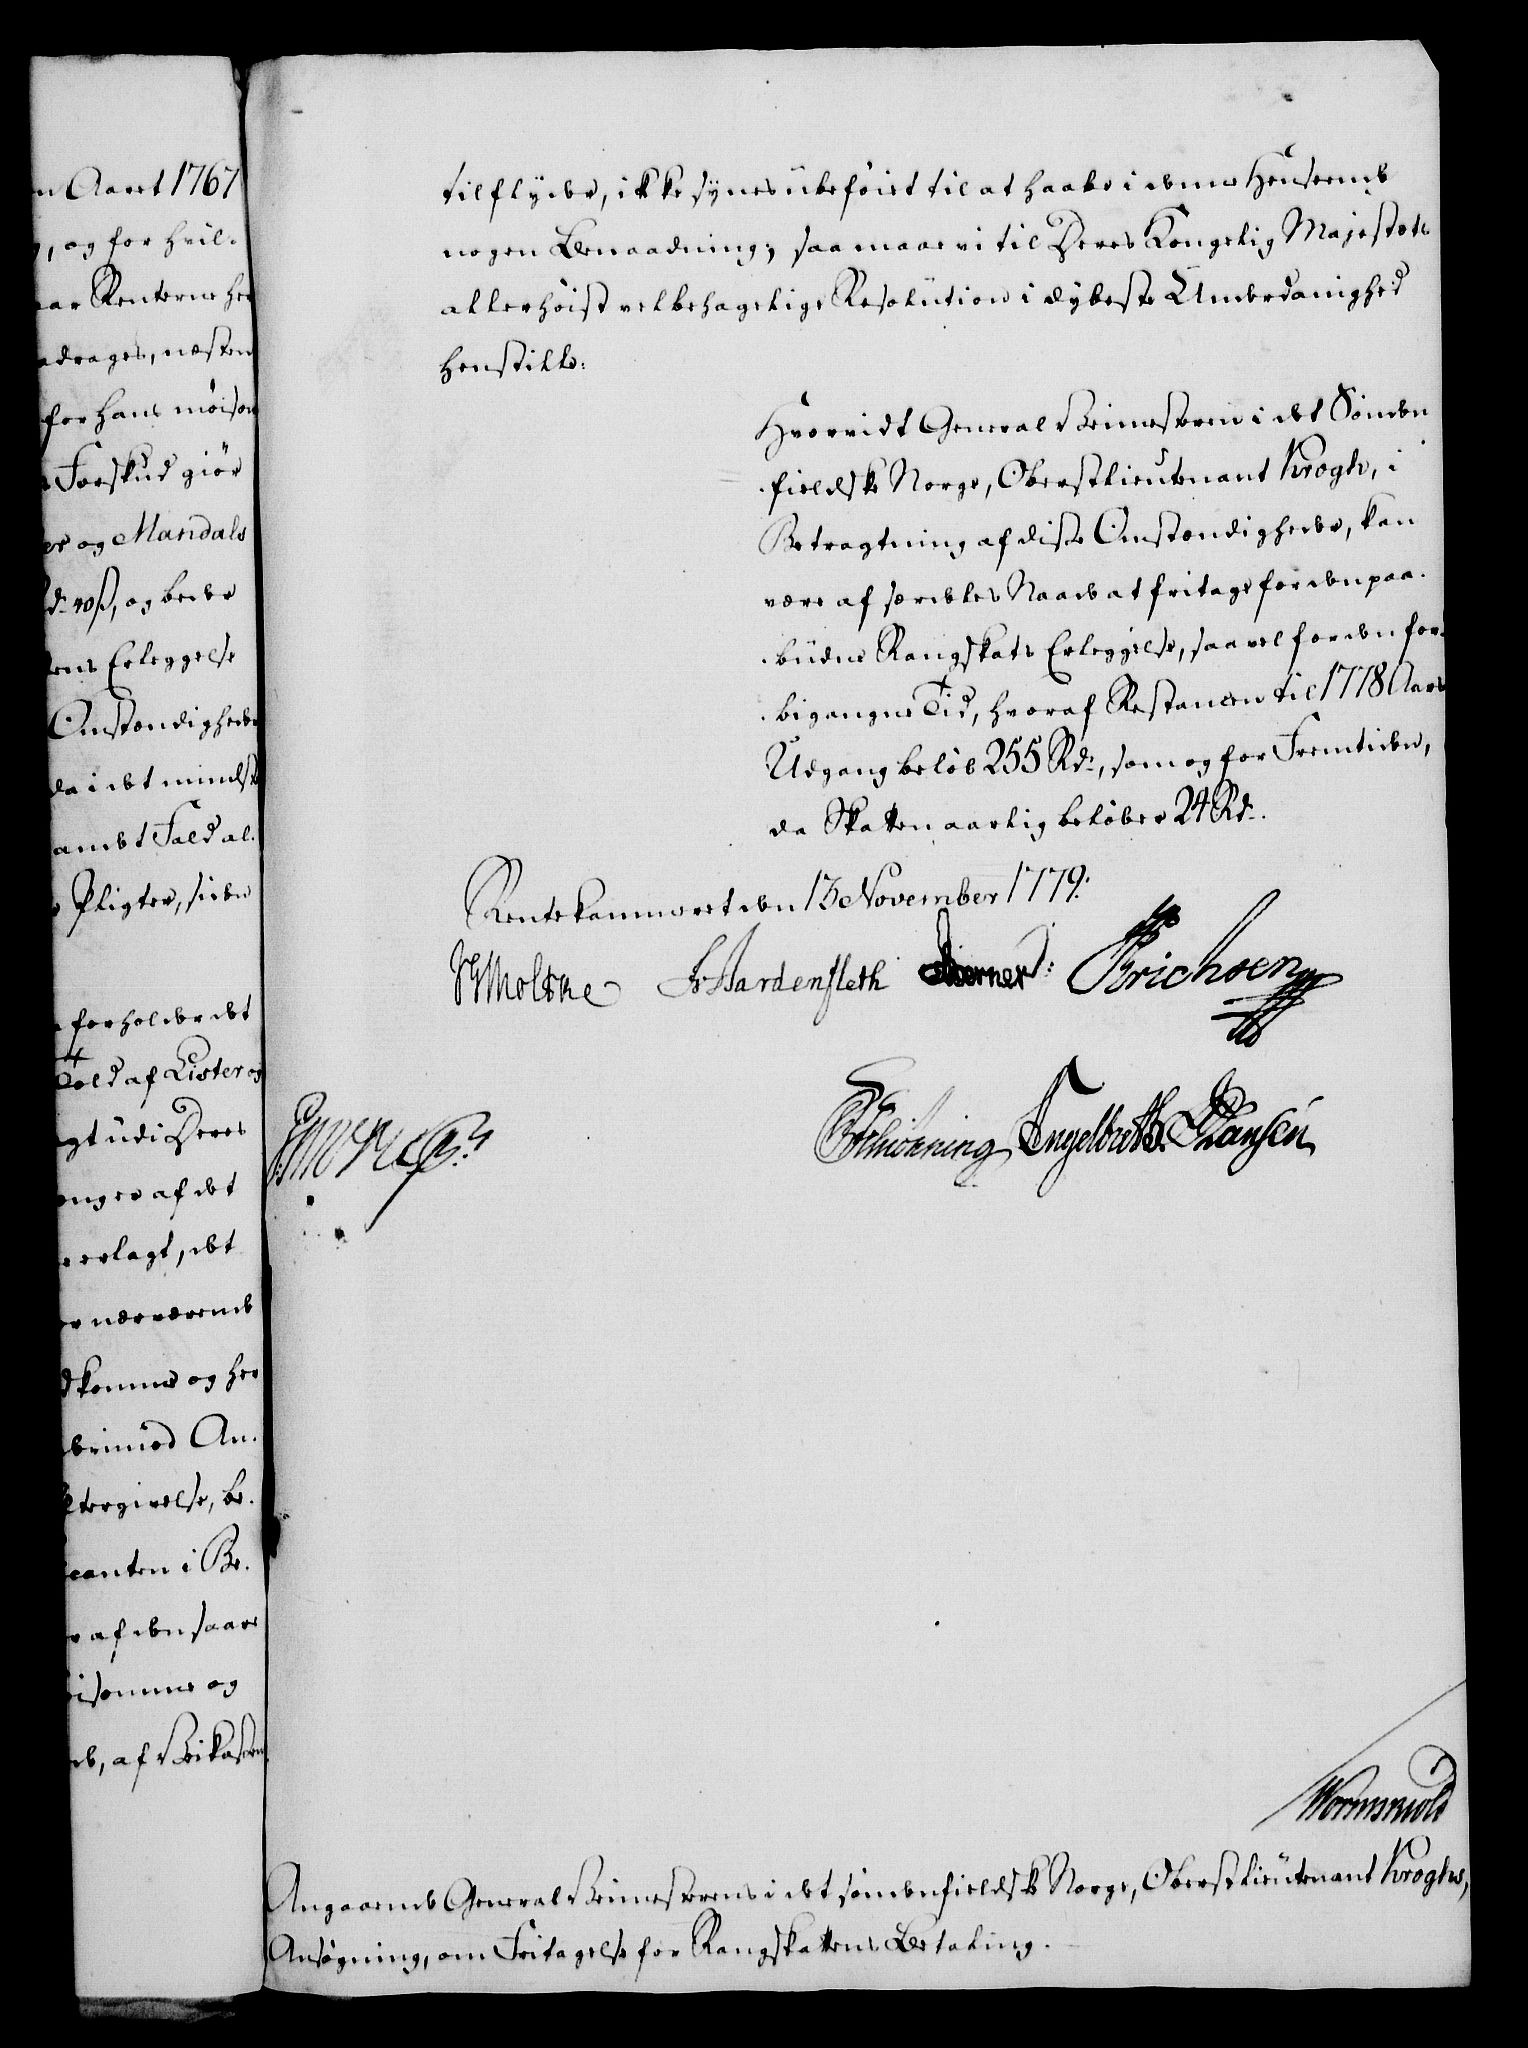 n Aaret 1767
, og for hvil-
aar Renterne her
adrages, næsten
for hans møisom
Forskud giør
er og Mandals
d: 40 ß, og beder
ens Erleggelse
Omstændigheder
da i det mindste
amdt Fald al-
Pligter, siden
forholder det
Told af Lister og
gt udi Deres
onges af det
erlagt, det
er nærværende
dkomme og her
An-
tergivelse, be-
canten i Be-
r af den saare
isomme og
de, af Veikassen
tilflyder, ikke synes ubeføiet til at haabe i denne Henseende
nogen Benaadning; saa maae vi til Deres Kongelig Majestæts
allerhøist velbehagelige Resolution i dybeste Underdanighed
henstille:
Hvorvidt General Veimesteren i det Sønden-
fieldske Norge, Oberstlieutenant Krogh, i
Betragtning af disse Omstændigheder, kan
være af særdeles Naade at fritage for den paa-
budne Rangskats Erleggelse, saavel for den for-
bigangne Tid, hvoraf Restancen til 1778 Aars
Udgang beløb 255 Rd:, som og for Fremtiden,
da Skatten aarlig beløber 24 Rd:.
Rentekammeret den 13 November 1779.
Moltke Fr Hardenfleth Berner: Erichsen
Schiønning Engelbreth. Hansen
Wormskiold
Angaaende General Veimesterens i det søndenfieldske Norge, Oberstlieutenant Kroghs,
Ansøgning, om Fritagelse for Rangskattens Betaling.